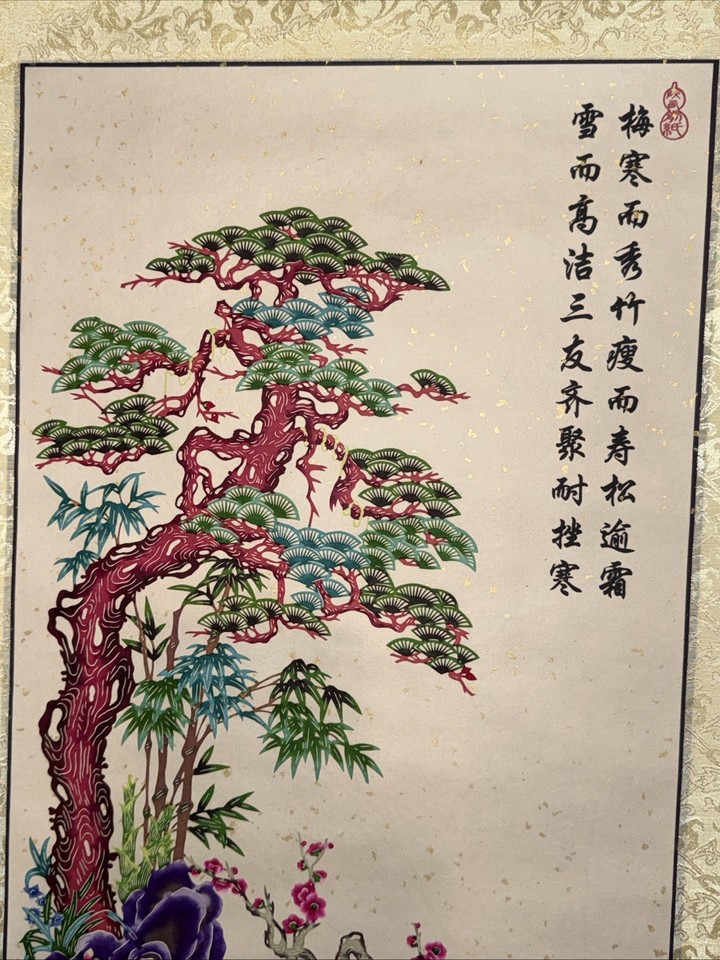 梅寒而秀竹瘦而寿松逾霜
雪而高洁三友齐聚耐挫寒